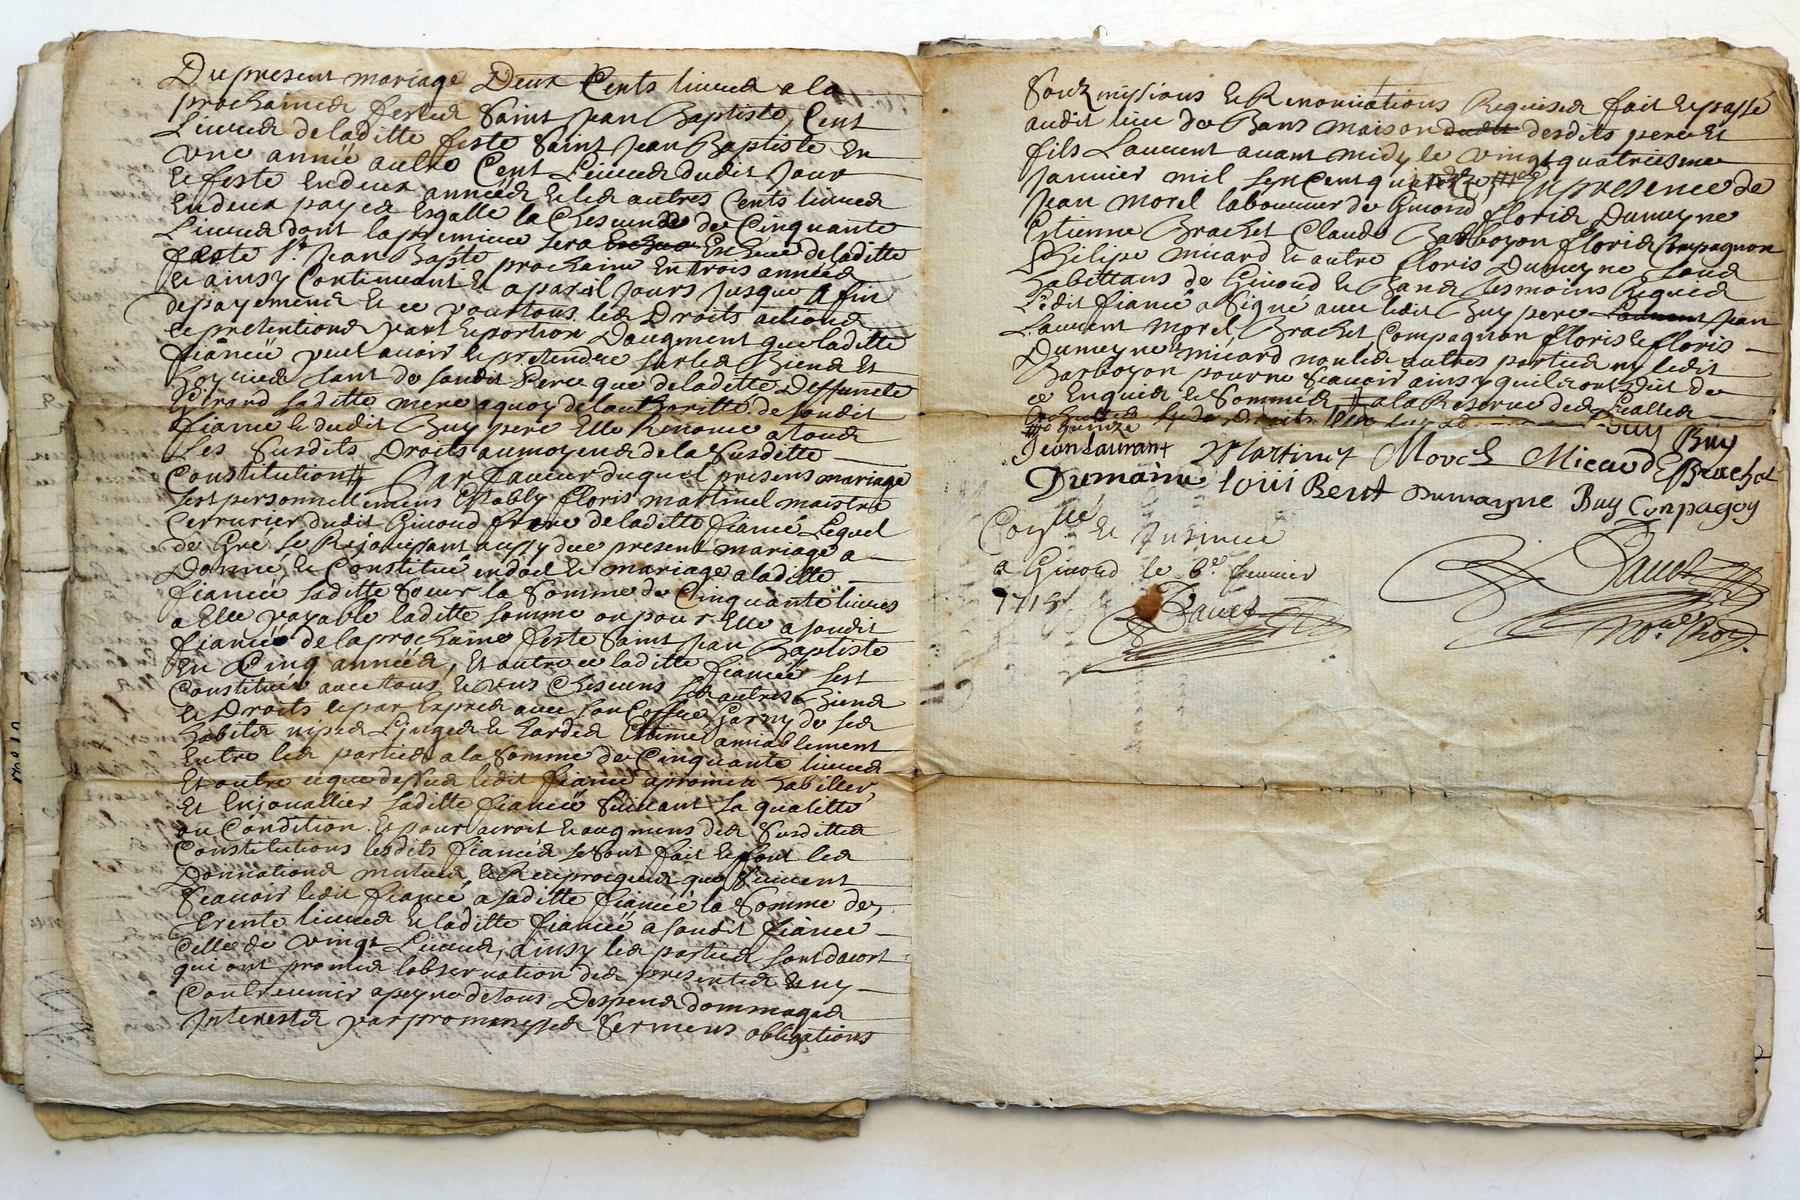 Du present mariage Deux Cents livres a la
prochaines festes Saint Jean Baptiste, Cent
Livres de laditte feste Saint Jean Baptiste En
une année autre Cent Livres dudit Jour
Et feste En deux années Et les autres Cents livres
En deux payes Esgalle la Chescune de Cinquante
Livres dont la premiere sera Escheue de laditte
feste St Jean Bapte prochaine En trois années
Et ainsy Continuant Et a pareil Jours Jusque a fin
de payements Et ce pour tous les Droits actions
Et pretentions part Et portion Daugment que laditte
fiancée peut avoir Et pretendre sur les Biens Et
hoyries tant de sondit Pere que de laditte Deffuncte
Girard saditte mere a quoy de lauthoritté de sondit
fiancé Et dudit Buy pere Elle Renonce a tous
Les Susdits Droits au moyens de la Susditte
Constitution Par faveur duquel presens mariage
sest personnellemens Estably floris martinel maistre
Serrurier dudit Givord frere de laditte fiancé Lequel
de Gre se Rejouissant aussy du present mariage a
Donné Et Constitué en dot Et mariage a laditte
fiancée saditte Sœur la Somme de Cinquante livres
a Elle payable laditte somme ou pour Elle a sondit
fiancé de la prochaine feste Saint Jean Baptiste
En Cinq années, Et outre ce laditte fiancée sest
Constituée avec tous Et uns Chescuns ses autres Biens
Et Droits Et par Expres avec son Coffre Garny de ses
habits nipes Linges Et hardes Estimé amiablement
Entre les parties a la Somme de Cinquante livres
Et outre ce que dessus ledit fiancé a promis habiller
Et Enjouallier saditte fiancée Suivant sa qualitté
ou Condition Et pour acroit Et augmens des Susdittes
Constitutions lesdits fiancés se sont fait Et font les
Donnations mutues Et Reciproques que Suivent
Scavoir ledit fiancé a saditte fiancée la Somme de
Trente livres Et laditte fiancée a sondit fiancé
Celle de vingt Livres, ainsy les parties sont dacort
qui ont promis lobservation des presentes Et ny
Contrevenir a peyne de tous Despens dommages
Interests par promesses Sermens obligations
Soubzmissions Et Renonciations Requises fait Et passé
audit lieu de Bans maison desdits pere Et
fils Laurent avant midy le vingt quatriesme
Janvier mil sept Cent En presence de
Jean Morel laboureur de Givord floris Dumayne
Etienne Brachet Claude Barboyon floris Compagnon
Philipe micard Et autre floris Dumeyne tous
habittans de Givord Et Bans tesmoins Requis
Ledit fiancé a Signé avec ledit Buy pere Jean
Laurent Morel, Brachet Compagnon floris Et floris
Dumeyne micard non les autres parties ny ledit
Barboyon pour ne Scavoir ainsy quils ont Dit de
ce Enquis Et Sommés a la Reserve des
quinze Buy Buy
Jean Laurant Martinet Morel Micard EBrachet
Dumaine Dumayne Buy Conpagon
Conllé Et Insinué
a Givord le 6e fevrier
1715